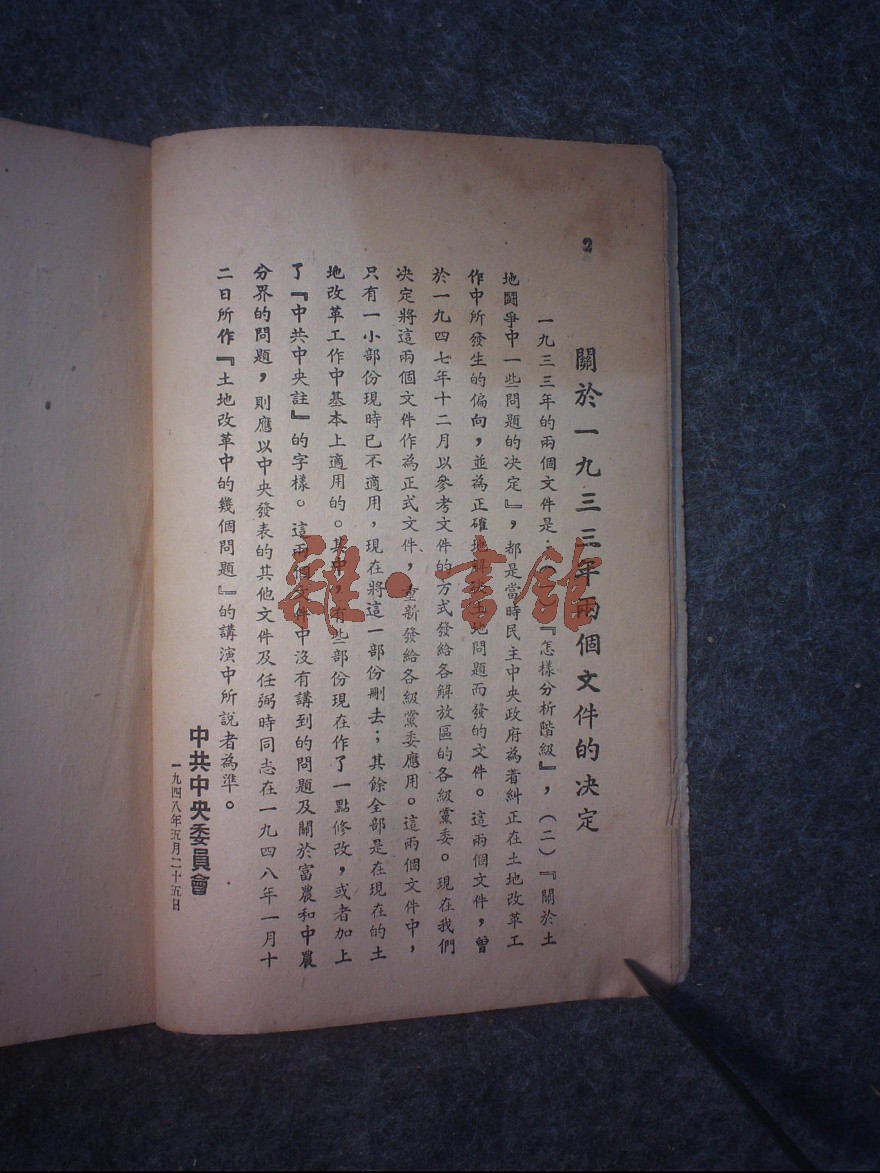 2
關於一九三三年兩個文件的決定
一九三三年的兩個文件是：（一）『怎樣分析階級』，（二）『關於土
地鬪爭中一些問題的决定』，都是當時民主中央政府為着糾正在土地改革工
作中所發生的偏向，並為正確地解放土地問題而發的文件。這兩個文件，曾
於一九四七年十二月以參考文件的方式發給各解放區的各級黨委。現在我們
決定將這兩個文件作為正式文件，重新發給各級黨委應用。這兩個文件中，
只有一小部份現時已不適用，現在將這一部份刪去；其餘全部是在現在的土
地改革工作中基本上適用的。其中，有些部份現在作了一點修改，或者加上
了『中共中央註』的字樣。這兩個文件中沒有講到的問題及關於富農和中農
分界的問題，則應以中央發表的其他文件及任弼時同志在一九四八年一月十
二日所作『土地改革中的幾個問題』的講演中所說者為準。
中共中央委員會
一九四八年五月二十五日
雜·書館